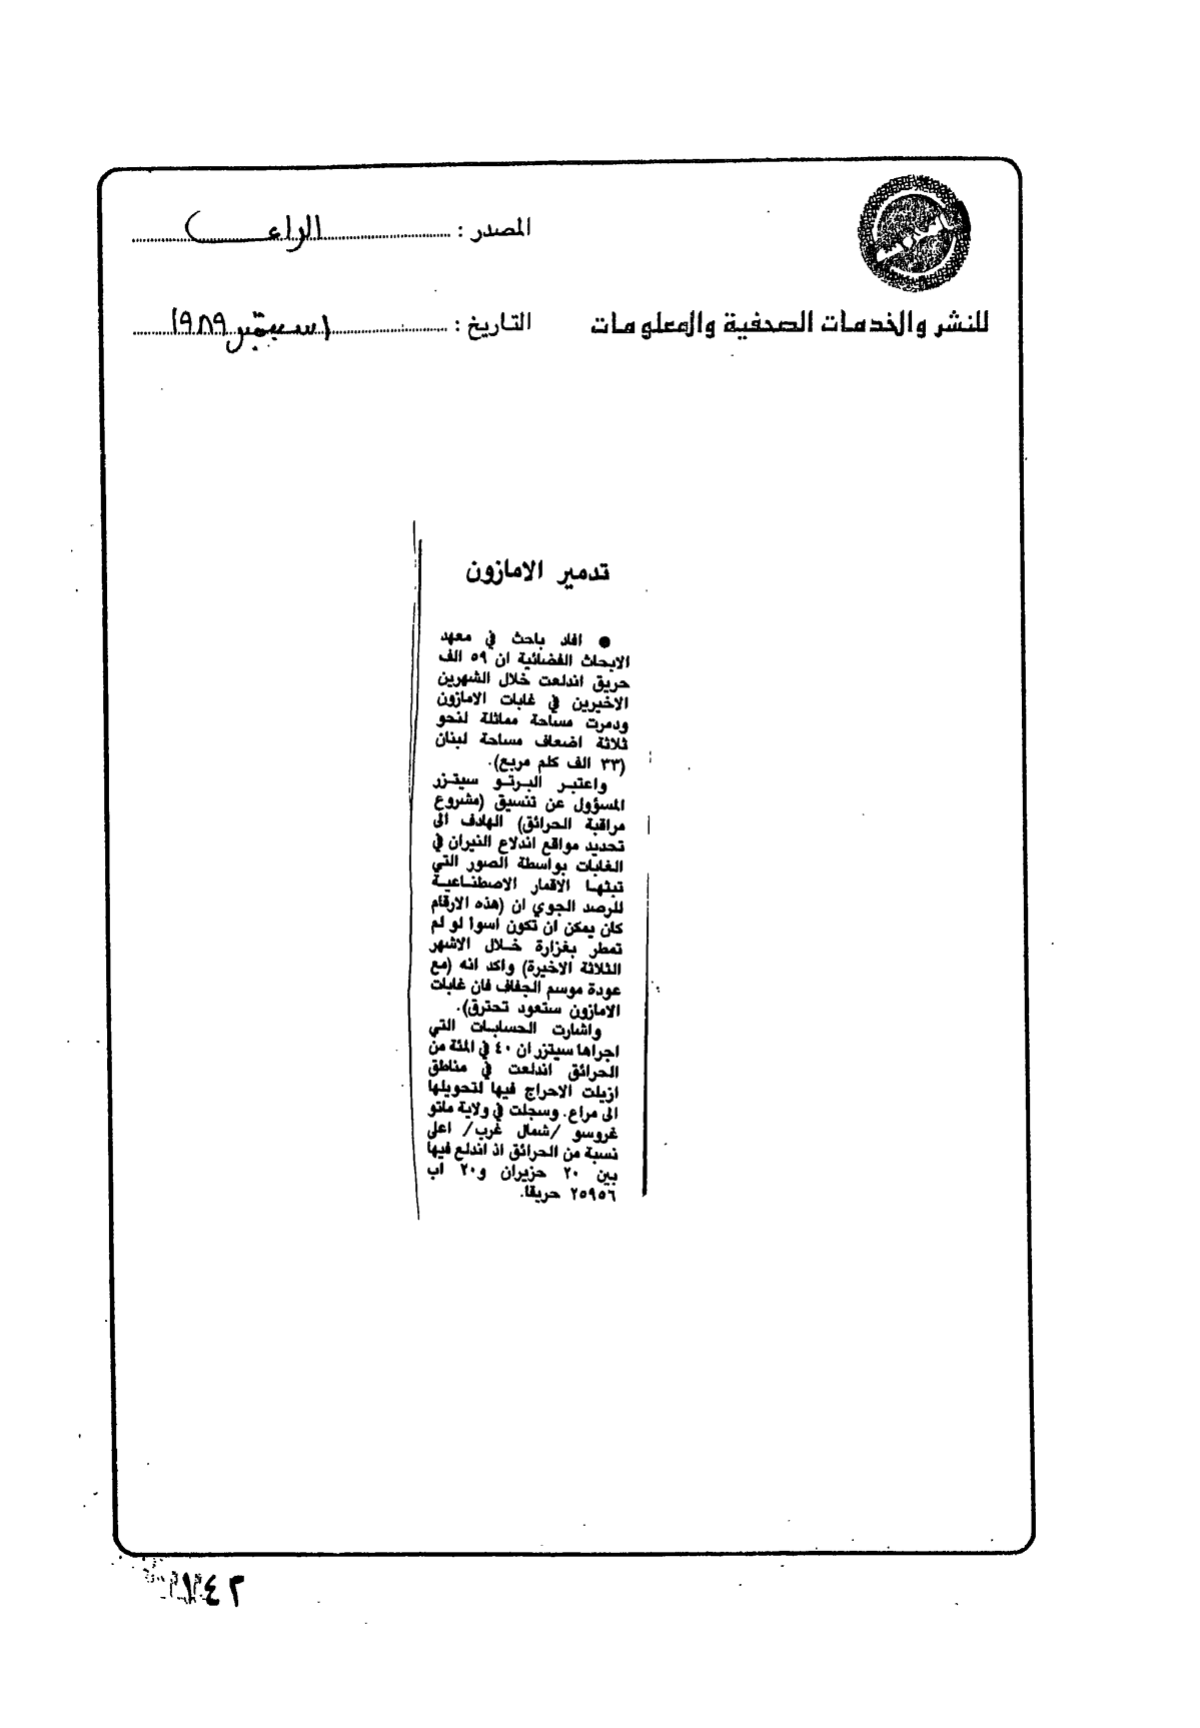 المصدر : الراي
للنشر والخدمات الصحفية والمعلومات
التاريخ : ١ سبتمبر ١٩٨٩
تدمير الامازون
● افاد باحث في معهد
الابحاث الفضائية ان ٥٩ الف
حريق اندلعت خلال الشهرين
الاخيرين في غابات الامازون
ودمرت مساحة مماثلة لنحو
ثلاثة اضعاف مساحة لبنان
(٣٣ الف كلم مربع).
واعتبر البرتو سيتزر
المسؤول عن تنسيق (مشروع
مراقبة الحرائق) الهادف الى
تحديد مواقع اندلاع النيران في
الغابات بواسطة الصور التي
تبثها الاقمار الاصطناعية
للرصد الجوي ان (هذه الارقام
كان يمكن ان تكون اسوا لو لم
تمطر بغزارة خلال الاشهر
الثلاثة الاخيرة) واكد انه (مع
عودة موسم الجفاف فان غابات
الامازون ستعود تحترق).
واشارت الحسابات التي
اجراها سيتزر ان ٤٠ في المئة من
الحرائق اندلعت في مناطق
ازيلت الاحراج فيها لتحويلها
الى مراع. وسجلت في ولاية ماتو
غروسو /شمال غرب/ اعلى
نسبة من الحرائق اذ اندلع فيها
بين ٢٠ حزيران و٢٠ اب
٢٥٩٥٦ حريقا.